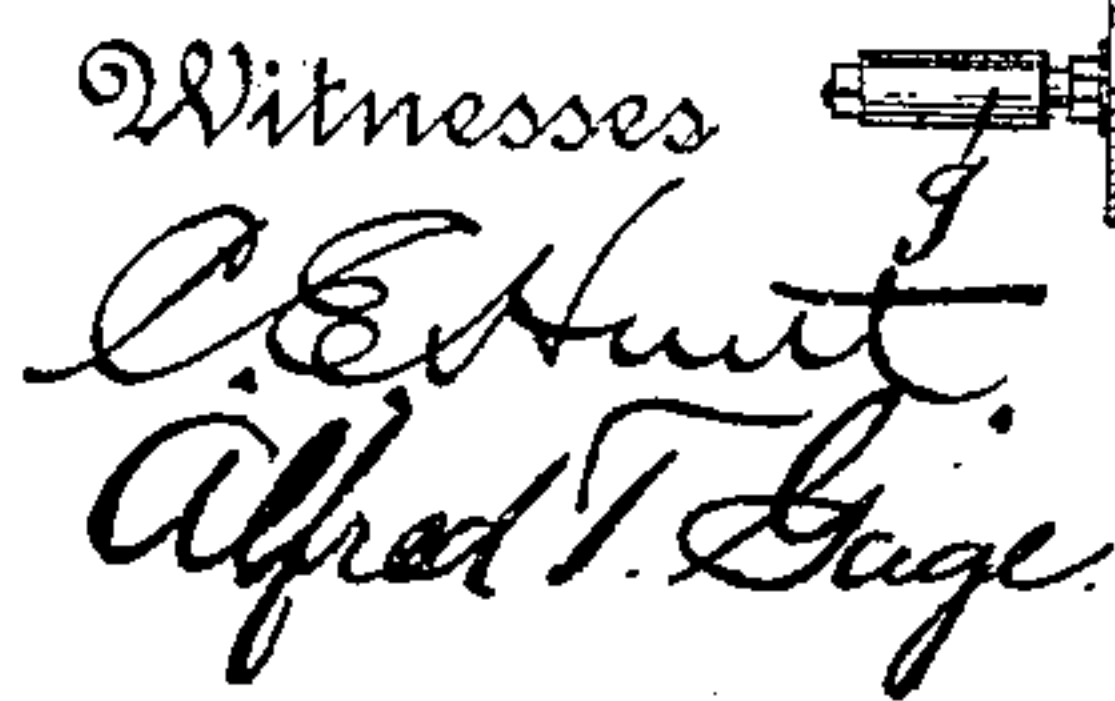 Witnesses
g
C. E. Hunt.
Alfred T. Gage.